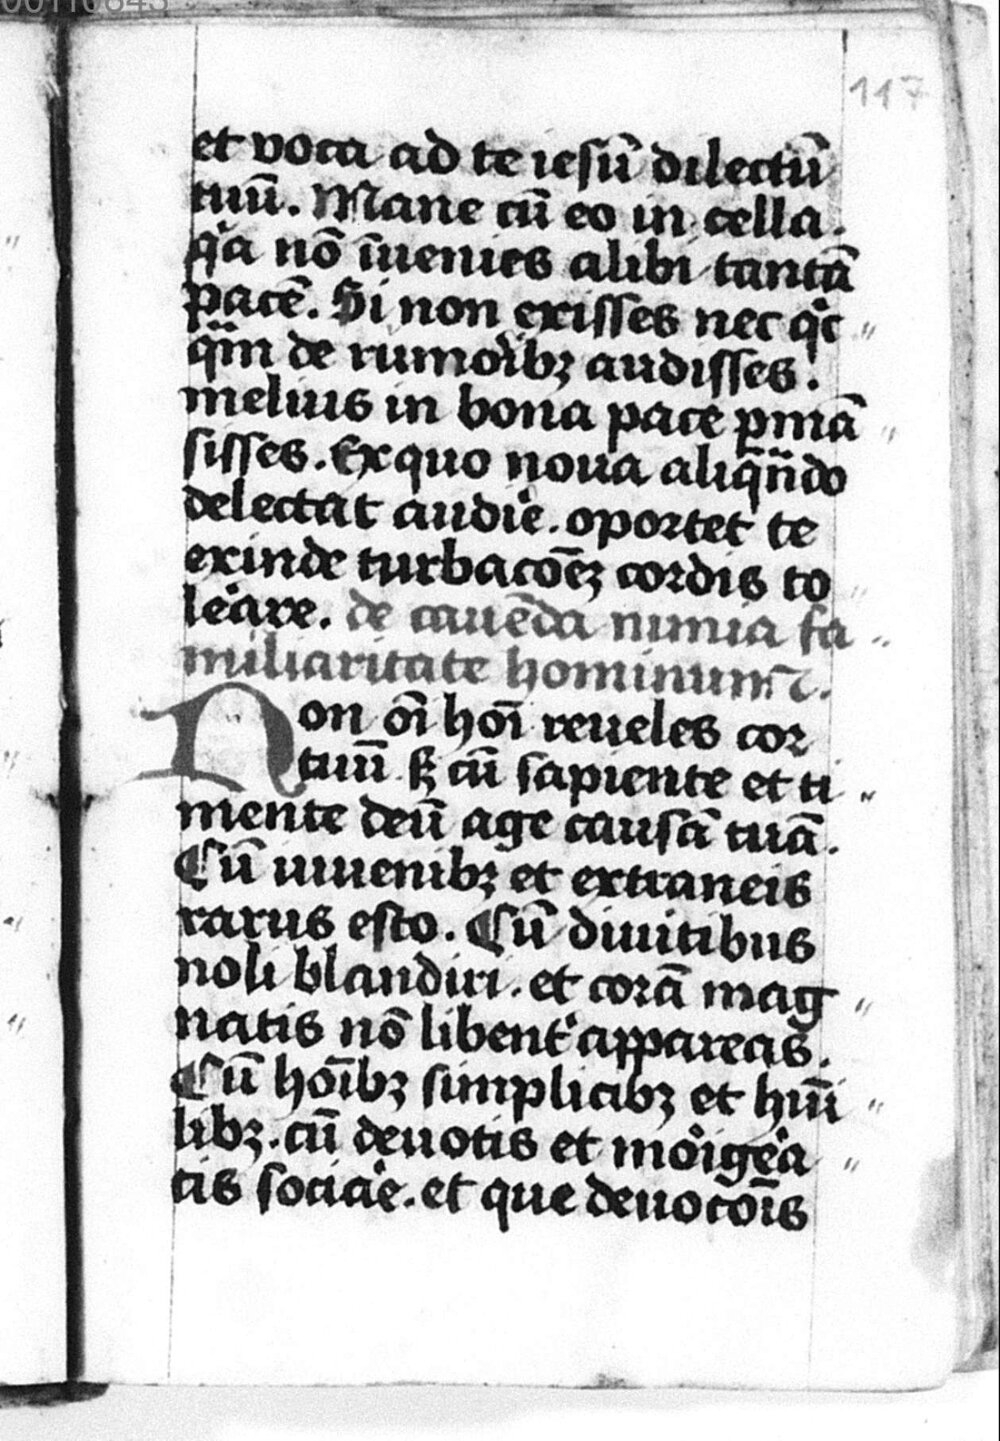 117
et voca ad te iesū dilectū
tuū. Mane cū eo in cella.
qͥa nō īuenies alibi tantā
pacē. Si non exisses nec qͥc
qͣm de rumoribꝫ audisses.
melius in bona pace ꝑmā
sisses. Ex quo noua aliqn̄do
delectat audiͤe. oportet te
exinde turbacōeꝫ cordis to
leͣare. de cauēda nimia fa
miliaritate hominum.
Non oī hoī reueles cor
tuū sꝫ cū sapiente et ti
mente deū age causā tuā.
Cū iuuenibꝫ et extraneis
rarus esto. Cū diuitibus
noli blandiri. et corā mag
natis nō libent᷑ appareas.
Cū hoībꝫ simplicibꝫ et hūi
libꝫ. cū deuotis et moͥigeͣa
tis sociaͤe. et que deuocōīs